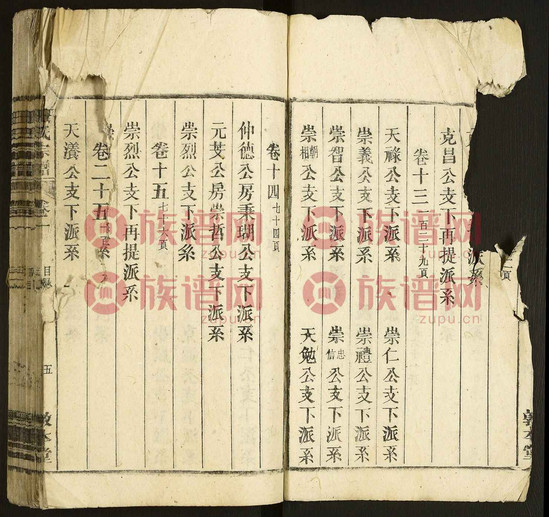 頁
派系
克昌公支下再提派系
卷十三一百二十九頁
天祿公支下派系 崇仁公支下派系
崇義公支下派系 崇禮公支下派系
崇智公支下派系 崇忠信公支下派系
崇朝相公支下派系 天勉公支下派系
卷十四七十四頁
仲德公房秉瑚公支下派系
元艾公房崇哲公支下派系
崇烈公支下派系
卷十五
崇烈公支下再提派系
卷二十五
天瀁公支下派系
氏宗譜
卷一
目
五
敦本堂
敦本堂
族谱网
zupu.cn
族谱网
zupu.cn
族谱网
zupu.cn
族谱网
zupu.cn